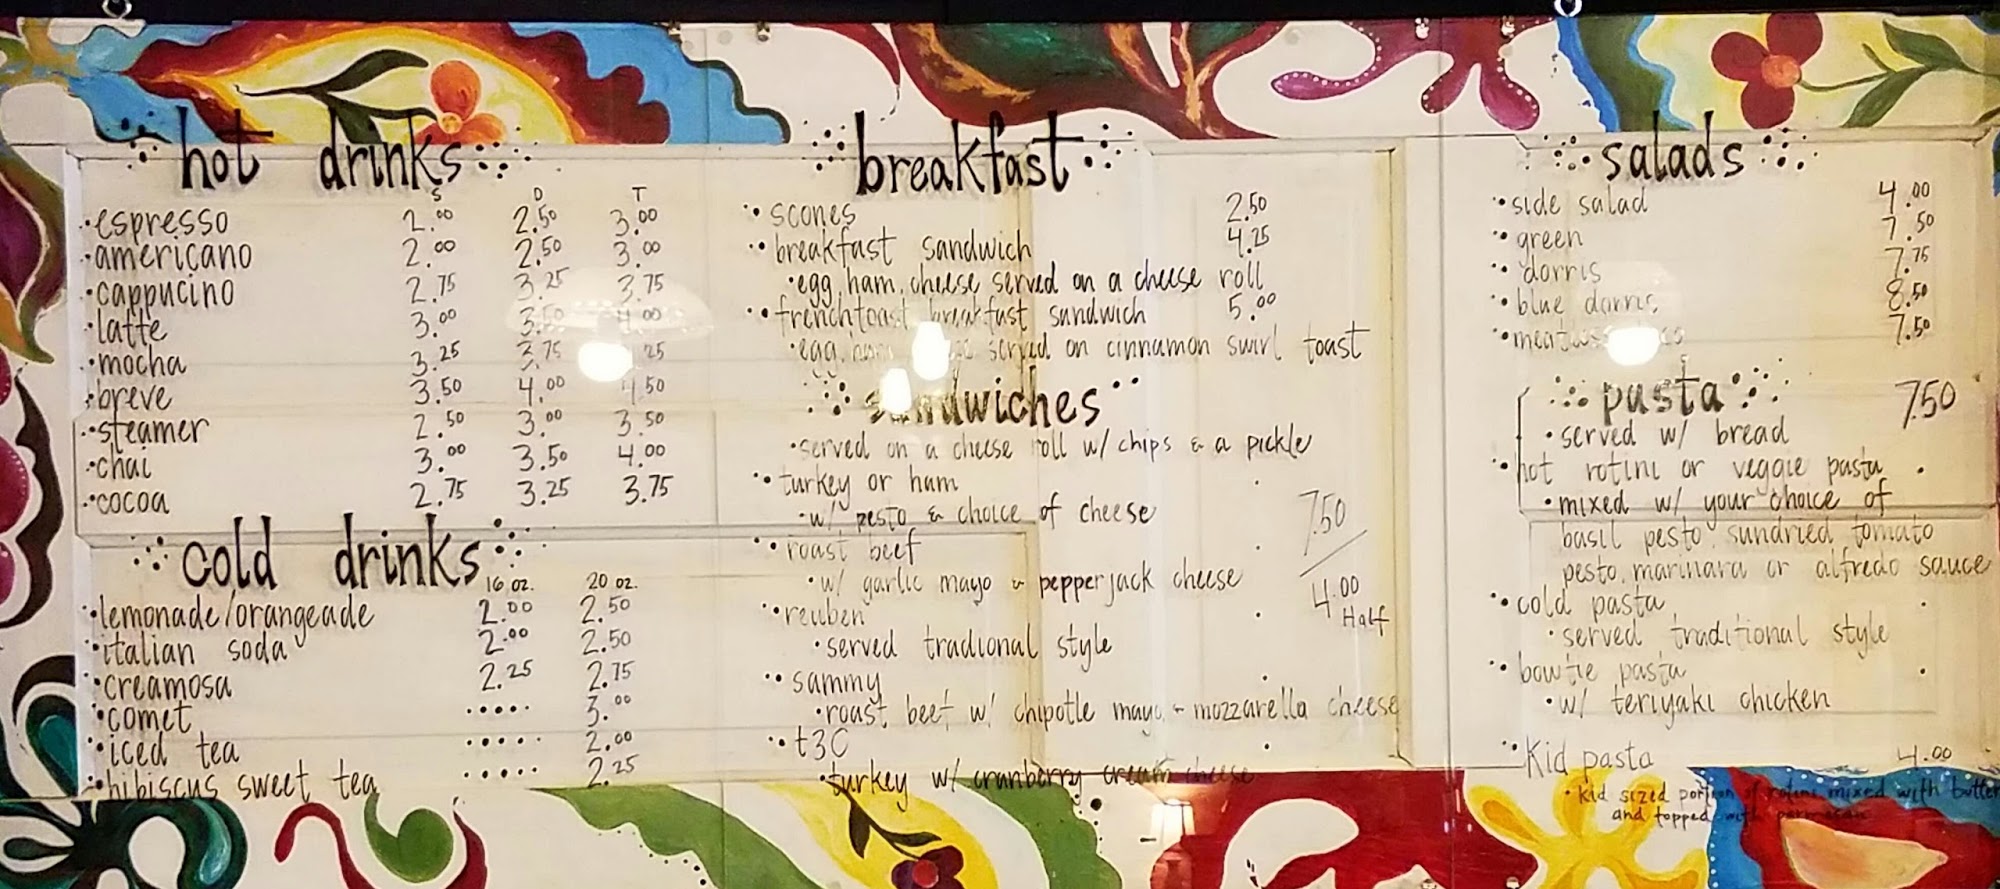 hot drinks
S D T
espresso 2.00 2.50 3.00
americano 2.00 2.50 3.00
cappucino 2.75 3.25 3.75
latte 3.00 3.50 4.00
mocha 3.25 3.75 25
breve 3.50 4.00 4.50
steamer 2.50 3.00 3.50
chai 3.00 3.50 4.00
cocoa 2.75 3.25 3.75
cold drinks
16 oz. 20 oz.
lemonade/orangeade 2.00 2.50
italian soda 2.00 2.50
creamosa 2.25 2.75
comet ..... 3.00
iced tea ..... 2.00
hibiscus sweet tea ..... 2.25
breakfast
scones 2.50
breakfast sandwich 4.25
egg, ham, cheese served on a cheese roll
frenchtoast breakfast sandwich 5.00
egg, ham, served on cinnamon swirl toast
sandwiches
served on a cheese roll w/ chips & a pickle
turkey or ham
w/ pesto & choice of cheese
7.50
roast beef
w/ garlic mayo & pepperjack cheese
4.00
Half
reuben
served tradional style
sammy
roast beef w/ chipotle mayo + mozzarella cheese
t3C
turkey w/ cranberry cream cheese
salads
side salad 4.00
green 7.50
dorris 7.75
blue dorris 8.50
7.50
pasta 7.50
served w/ bread
hot rotini or veggie pasta
mixed w/ your choice of
basil pesto, sundried tomato
pesto, marinara or alfredo sauce
cold pasta
served traditional style
bowtie pasta
w/ teriyaki chicken
Kid pasta 4.00
Kid sized portion of rotini mixed with butter
and topped with parmesan